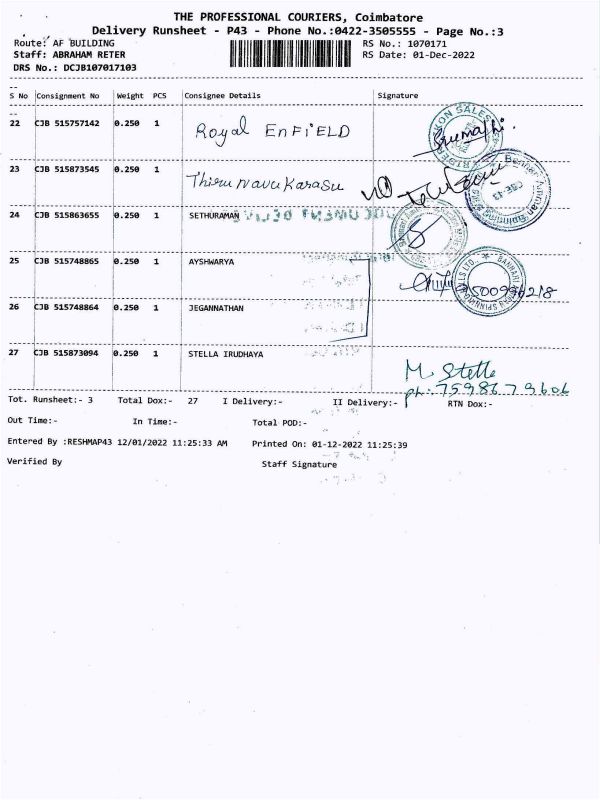 THE PROFESSIONAL COURIERS, Coimbatore
Delivery Runsheet - P43 - Phone No.:0422-3505555 - Page No.:3
Route: AF BUILDING RS No.: 1070171
Staff: ABRAHAM RETER RS Date: 01-Dec-2022
DRS No.: DCJB107017103
S No Consignment No Weight PCS Consignee Details Signature
22 CJB 515757142 0.250 1 Royal ENFiELD
23 CJB 515873545 0.250 1 Thirunavukarasu
24 CJB 515863655 0.250 1 SETHURAMAN
25 CJB 515748865 0.250 1 AYSHWARYA
26 CJB 515748864 0.250 1 JEGANNATHAN
27 CJB 515873094 0.250 1 STELLA IRUDHAYA M. Stelle
ph: 7598679606
Tot. Runsheet:- 3 Total Dox:- 27 I Delivery:- II Delivery:- RTN Dox:-
Out Time:- In Time:- Total POD:-
Entered By :RESHMAP43 12/01/2022 11:25:33 AM Printed On: 01-12-2022 11:25:39
Verified By Staff Signature